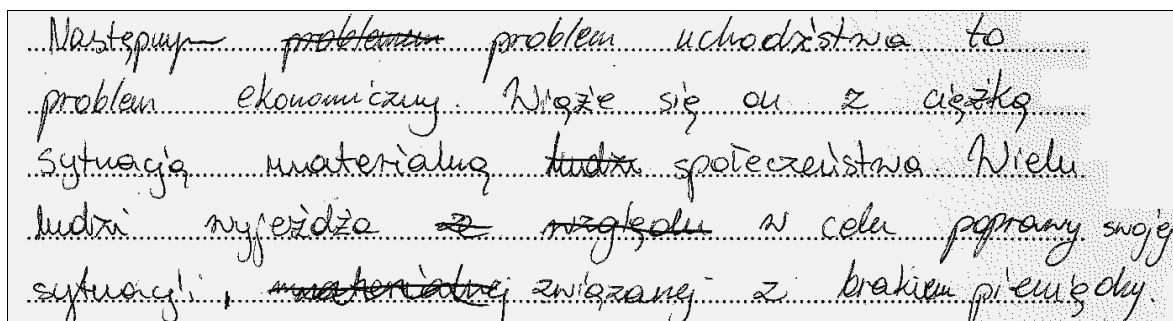 Następny problemem problem uchodźstwa to
problem ekonomiczny. Wiąże się on z ciężką
sytuacją materialną ludzi społeczeństwa. Wielu
ludzi wyjeżdża ze względu w celu poprawy swojej
sytuacji, materialnej związanej z brakiem pieniędzy.